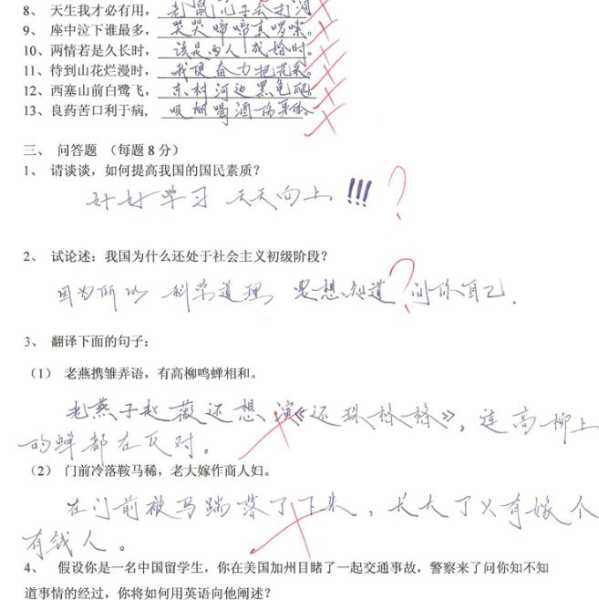 8、 天生我才必有用， 老鼠儿子会打洞
9、 座中泣下谁最多， 哭哭啼啼真啰嗦。
10、两情若是久长时， 该是两人成婚时。
11、待到山花烂漫时， 我便奋力把花采。
12、西塞山前白鹭飞， 东村河边黑龟爬
13、良药苦口利于病， 吸烟喝酒伤身体。
三、 问答题 （每题8分）
1、 请谈谈，如何提高我国的国民素质？
好好学习 天天向上 !!! ?
2、 试论述：我国为什么还处于社会主义初级阶段？
因为所以 科学道理 思想知道 ? 问你自己.
3、 翻译下面的句子：
（1） 老燕携雏弄语，有高柳鸣蝉相和。
老燕子赵薇还想演《还珠格格》，连高柳上
的蝉都在反对。
（2） 门前冷落鞍马稀，老大嫁作商人妇。
在门前被马踹落了下来，长大了又有嫁个
有钱人。
4、 假设你是一名中国留学生，你在美国加州目睹了一起交通事故，警察来了问你知不知
道事情的经过，你将如何用英语向他阐述？